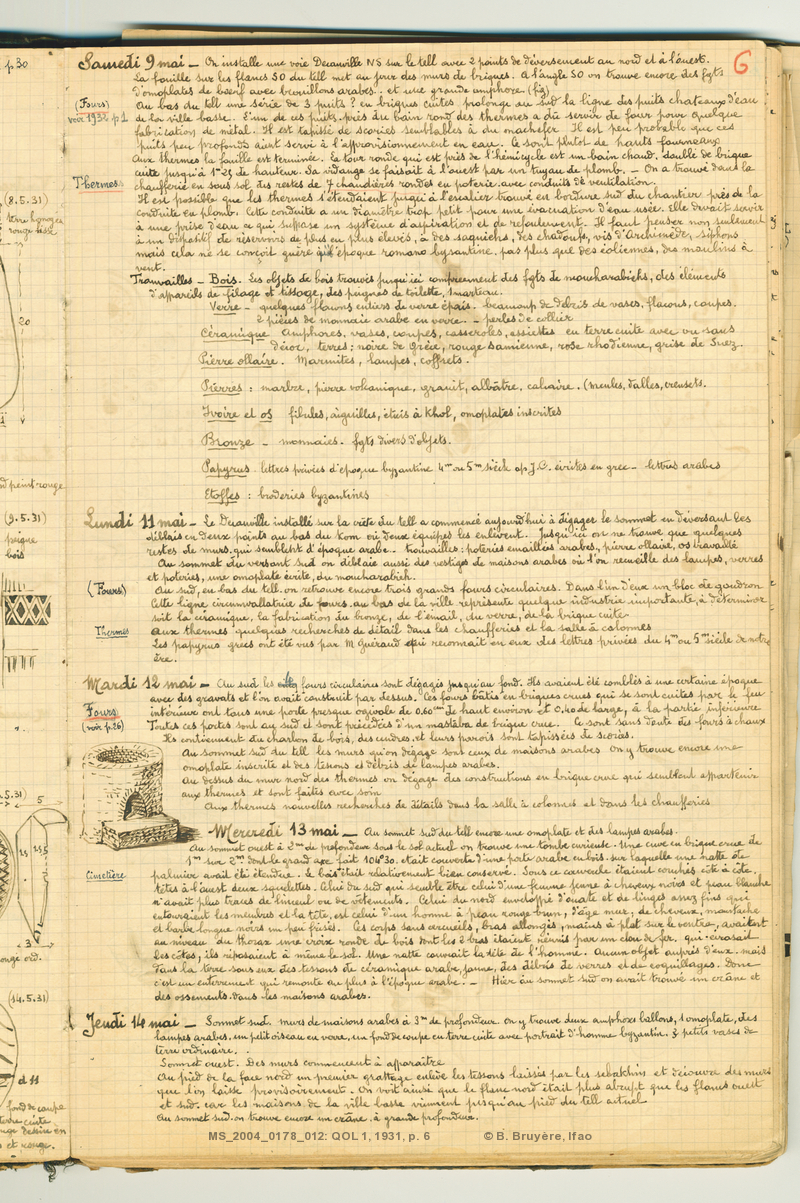 p.30
6
Samedi 9 mai – On installe une voie Decauville NS sur le tell avec 2 points de déversement au nord et à l'ouest.
La fouille sur les flancs SO du tell met au jour des murs de briques. A l'angle SO on trouve encore des fgts
d'omoplates de boeuf avec brouillons arabes. et une grande amphore (fig)
(Fours) Au bas du tell une série de 3 puits ? en briques cuites prolonge au sud la ligne des puits chateaux d'eau
voir 1932 p 1 de la ville basse. L'un de ces puits près du bain rond des thermes a dû servir de four pour quelque
fabrication de métal. Il est tapissé de scories semblables à du machefer. Il est peu probable que ces
puits peu profonds aient servi à l'approvisionnement en eau. Ce sont plutot de hauts fourneaux
Aux thermes la fouille est terminée. La tour ronde qui est près de l'hémicycle est un bain chaud, doublé de brique
cuite jusqu'à 1m23 de hauteur. Sa vidange se faisait à l'ouest par un tuyau de plomb. – On a trouvé dans la
Thermes chaufferie en sous sol des restes de 7 chaudières rondes en poterie avec conduits de ventilation.
Il est possible que les thermes s'étendaient jusqu'à l'escalier trouvé en bordure sud du chantier près de la
conduite en plomb. Cette conduite a un diamètre trop petit pour une évacuation d'eau usée. Elle devait servir
à une prise d'eau ce qui suppose un système d'aspiration et de refoulement. Il faut penser non seulement
à un dispositif de réservoirs de plus en plus élevés, à des saquiehs, des chadoufs, vis d'Archimède, siphons
mais cela ne se conçoit guère qu'à l'époque romano byzantine. pas plus que des éoliennes, des moulins à
vent.
Trouvailles – Bois. Les objets de bois trouvés jusqu'ici comprennent des fgts de moucharabiehs, des éléments
d'appareils de filage et tissage, des peignes de toilette, 1 marteau.
Verre – quelques flacons entiers de verre épais. beaucoup de débris de vases, flacons, coupes.
2 pièces de monnaie arabe en verre. – perles de collier
Céramique Amphores, vases, coupes, casseroles, assiettes en terre cuite avec ou sans
décor, terres : noire de Grèce, rouge samienne, rose rhodienne, grise de Suez.
Pierre ollaire. Marmites, lampes, coffrets.
Pierres : marbre, pierre volcanique, granit, albâtre, calcaire. (meules, dalles, creusets.
Ivoire et os fibules, aiguilles, étuis à khol, omoplates inscrites
Bronze – monnaies. fgts divers d'objets.
Papyrus. lettres privées d'époque byzantine 4me ou 5me siècle ap. J.C. écrites en grec – lettres arabes
Etoffes : broderies byzantines
Lundi 11 mai – Le Decauville installé sur la crête du tell a commencé aujourd'hui à dégager le sommet en déversant les
déblais en deux points au bas du kom où deux équipes les enlèvent. Jusqu'ici on ne trouve que quelques
restes de murs qui semblent d'époque arabe. trouvailles : poteries émaillées arabes, pierre ollaire, os travaillé
Au sommet du versant sud on déblaie aussi des vestiges de maisons arabes où l'on recueille des lampes, verres
et poteries, une omoplate écrite, du moucharabieh.
(Fours) Au sud, en bas du tell on retrouve encore trois grands fours circulaires. Dans l'un d'eux un bloc de goudron
Cette ligne circumvallatrice de fours au bas de la ville représente quelque industrie importante, à déterminer
soit la céramique, la fabrication du bronze, de l'émail, du verre, de la brique cuite
Thermes Aux thermes quelques recherches de détail dans les chaufferies et la salle à colonnes
Les papyrus grecs ont été vus par M Guéraud qui reconnait en eux des lettres privées du 4me ou 5me siècle de notre
ère.
Mardi 12 mai – Au sud les fours circulaires sont dégagés jusqu'au fond. Ils avaient été comblés à une certaine époque
avec des gravats et l'on avait construit par dessus. Ces fours bâtis en briques crues qui se sont cuites par le feu
Fours intérieur ont tous une porte presque ogivale de 0.60cm de haut environ et 0,40 de large, à la partie inférieure
(voir p.26) Toutes ces portes sont au sud et sont précédées d'un mastaba de brique crue. Ce sont sans doute des fours à chaux
Ils contiennent du charbon de bois, des cendres, et leurs parois sont tapissées de scories.
Au sommet sud du tell les murs qu'on dégage sont ceux de maisons arabes On y trouve encore une
omoplate inscrite et des tessons et débris de lampes arabes.
Au dessus du mur nord des thermes on dégage des constructions en brique crue qui semblent appartenir
aux thermes et sont faites avec soin
Aux thermes nouvelles recherches de détails dans la salle à colonnes et dans les chaufferies
Mercredi 13 mai – Au sommet sud du tell encore une omoplate et des lampes arabes.
Au sommet ouest à 2m de profondeur sous le sol actuel on trouve une tombe curieuse. Une cuve en brique crue de
1m sur 2m dont le grand axe fait 106°30. était couverte d'une porte arabe en bois sur laquelle une natte de
Cimetière palmier avait été étendue. Le bois était relativement bien conservé. Sous ce couvercle étaient couchés côte à côte,
têtes à l'ouest deux squelettes. Celui du sud qui semble être celui d'une femme jeune à cheveux noirs et peau blanche
n'avait plus traces de linceul ou de vêtements. Celui du nord enveloppé d'ouate et de linges assez fins qui
entouraient les membres et la tête, est celui d'un homme à peau rouge brun, d'âge mur, de cheveux, moustache
et barbe longue noirs un peu frisés. Ces corps sans cercueils, bras allongés, mains à plat sur le ventre, avaient
au niveau du thorax une croix ronde de bois dont les 2 bras étaient réunis par un clou de fer. qui écrasait
les côtes, ils reposaient à même le sol. Une natte couvrait la tête de l'homme. Aucun objet auprès d'eux. mais
dans la terre sous eux des tessons de céramique arabe, jaune, des débris de verres et de coquillages. Donc
c'est un enterrement qui remonte au plus à l'époque arabe. – Hier au sommet sud on avait trouvé un crâne et
des ossements dans les maisons arabes.
Jeudi 14 mai – Sommet sud. murs de maisons arabes à 3m de profondeur. On y trouve deux amphores ballons, 1 omoplate, des
lampes arabes, un petit oiseau en verre, un fond de coupe en terre cuite avec portrait d'homme byzantin. 3 petits vases de
terre ordinaire.
Sommet ouest. Des murs commencent à apparaître
Au pied de la face nord un premier grattage enlève les tessons laissés par les sebakhin et découvre des murs
que l'on laisse provisoirement. On voit ainsi que le flanc nord était plus abrupt que les flancs ouest
et sud. car les maisons de la ville basse viennent jusqu'au pied du tell actuel
Au sommet sud on trouve encore un crâne à grande profondeur.
(8.5.31)
20
(9.5.31)
peigne
bois
5.31)
5
3
(14.5.31)
d 11
fond de coupe
terre cuite
et rouge.
MS_2004_0178_012: QOL 1, 1931, p. 6 © B. Bruyère, Ifao